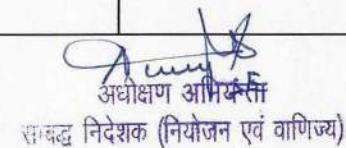 अधीक्षण अभियन्ता
सम्बद्ध निदेशक (नियोजन एवं वाणिज्य)